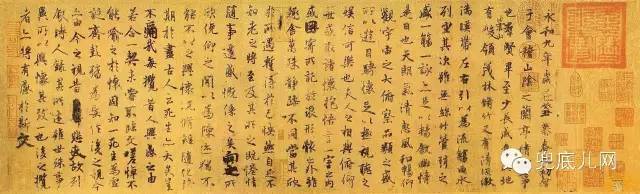 永和九年歲在癸丑暮春之初會
于會稽山陰之蘭亭脩稧事
也羣賢畢至少長咸集此地
有崇山峻領茂林脩竹又有清流激
湍暎帶左右引以為流觴曲水
列坐其次雖無絲竹管弦之
盛一觴一詠亦足以暢敘幽情
是日也天朗氣清惠風和暢仰
觀宇宙之大俯察品類之盛
所以遊目騁懷足以極視聽之
娛信可樂也夫人之相與俯仰
一世或取諸懷抱悟言一室之內
或因寄所託放浪形骸之外雖
趣舍萬殊靜躁不同當其欣
於所遇蹔得於己怏然自足不
知老之將至及其所之既惓情
隨事遷感慨係之矣向之所
欣俛仰之間以為陳迹猶不
能不以之興懷況脩短隨化終
期於盡古人云死生亦大矣豈
不痛哉每攬昔人興感之由
若合一契未嘗不臨文嗟悼不
能喻之於懷固知一死生為虛
誕齊彭殤為妄作後之視今
亦由今之視昔悲夫故列
敘時人錄其所述雖世殊事
異所以興懷其致一也後之攬
者亦將有感於斯文
兜底儿网